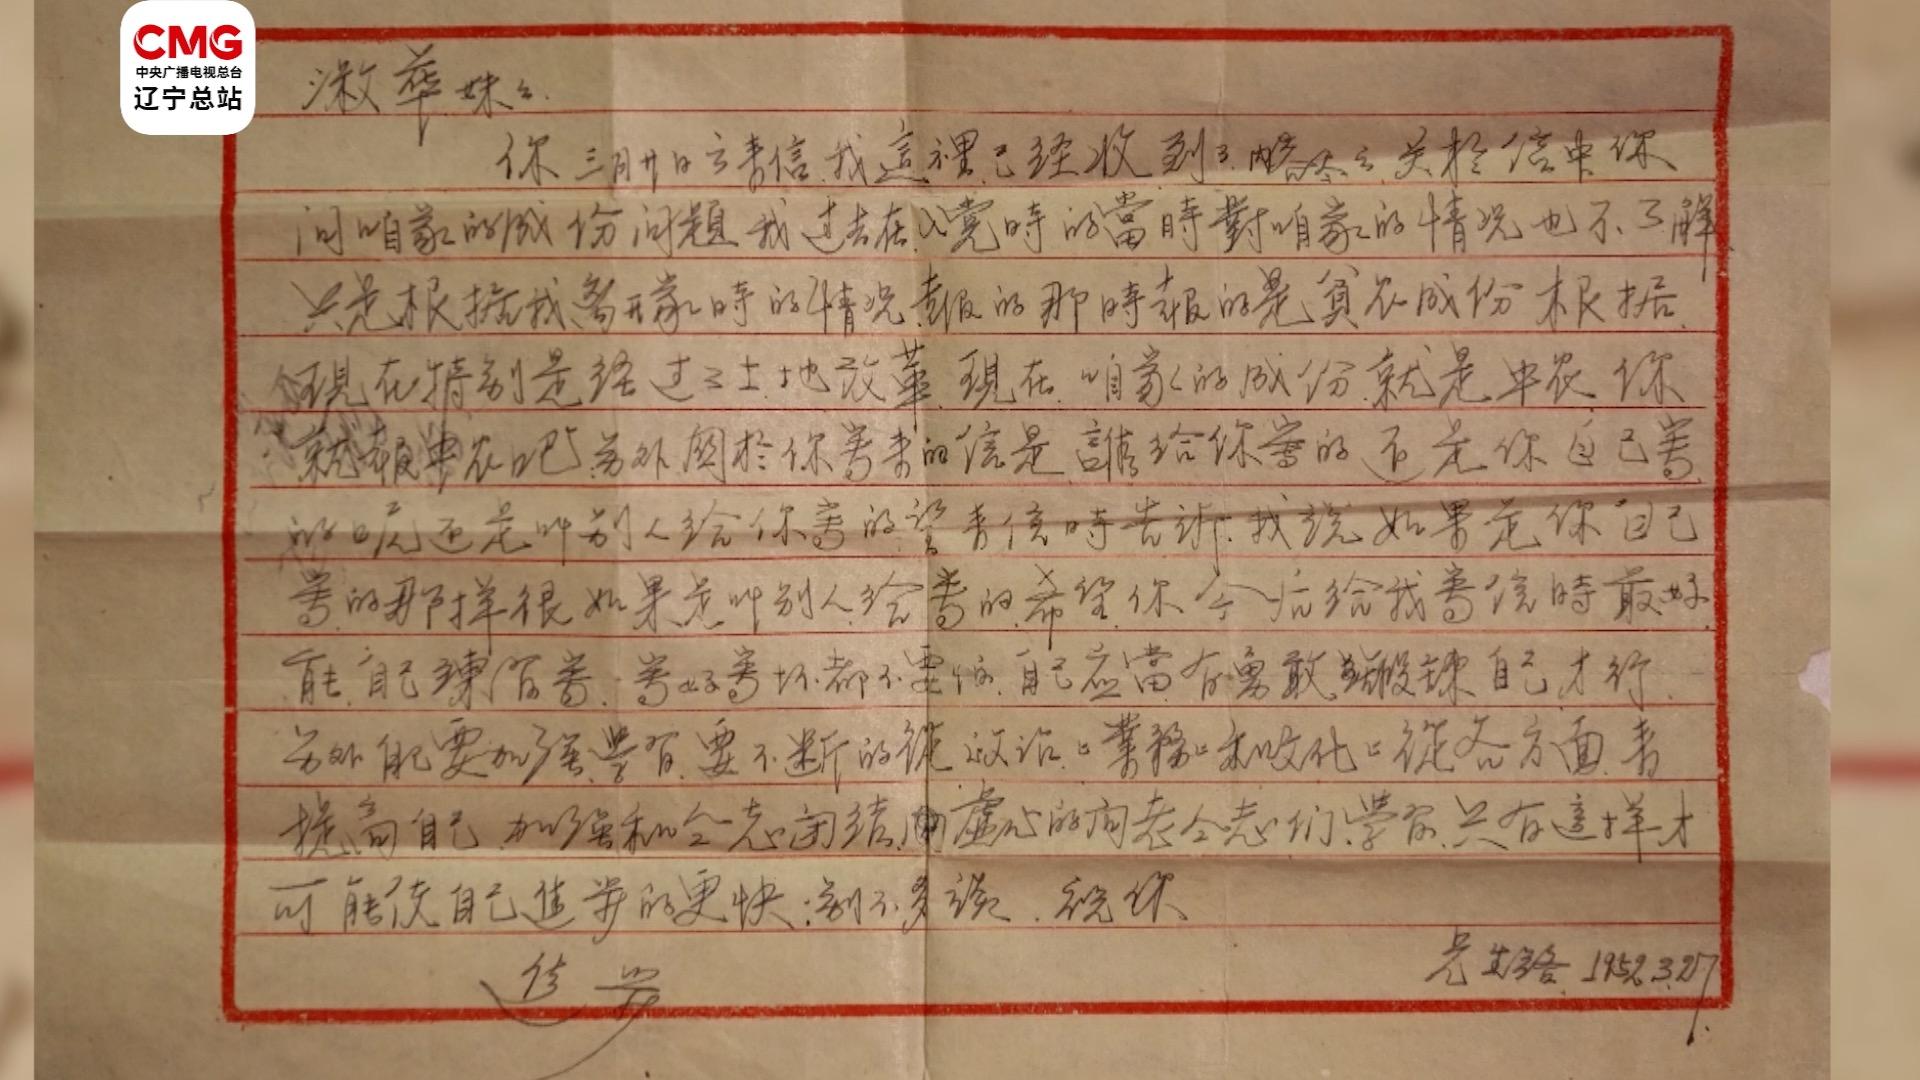 CMG
中央广播电视总台
辽宁总站
淑華妹:
你三月廿日云来信,我這裡已经收到了,内容尽知,关於信中你
问咱家的成份问题,我过去在入党時的當時對咱家的情况也不了解
只是根据我离开家時的情况報的那時報的是貧农成份根据
現在特别是经过了土地改革現在咱家的成份就是中农你
就報中农吧另外関於你寫来的信是誰给你寫的还是你自己寫
的呢还是叫别人给你寫的望来信時告訴我说如果是你自己
寫的那样很如果是叫别人给寫的希望你今后给我寫信時最好
能自己練習寫.寫好寫坏都不要怕自己应當有勇敢鍛鍊自己才行
另外自己要加强學習,要不断的從政治"業務"和文化"從各方面来
提高自己加强和仝志闭结虚心的向老仝志们學習只有這样才
可能使自己進步的更快.别不多談.祝你
進步
兄生 1952.3.27